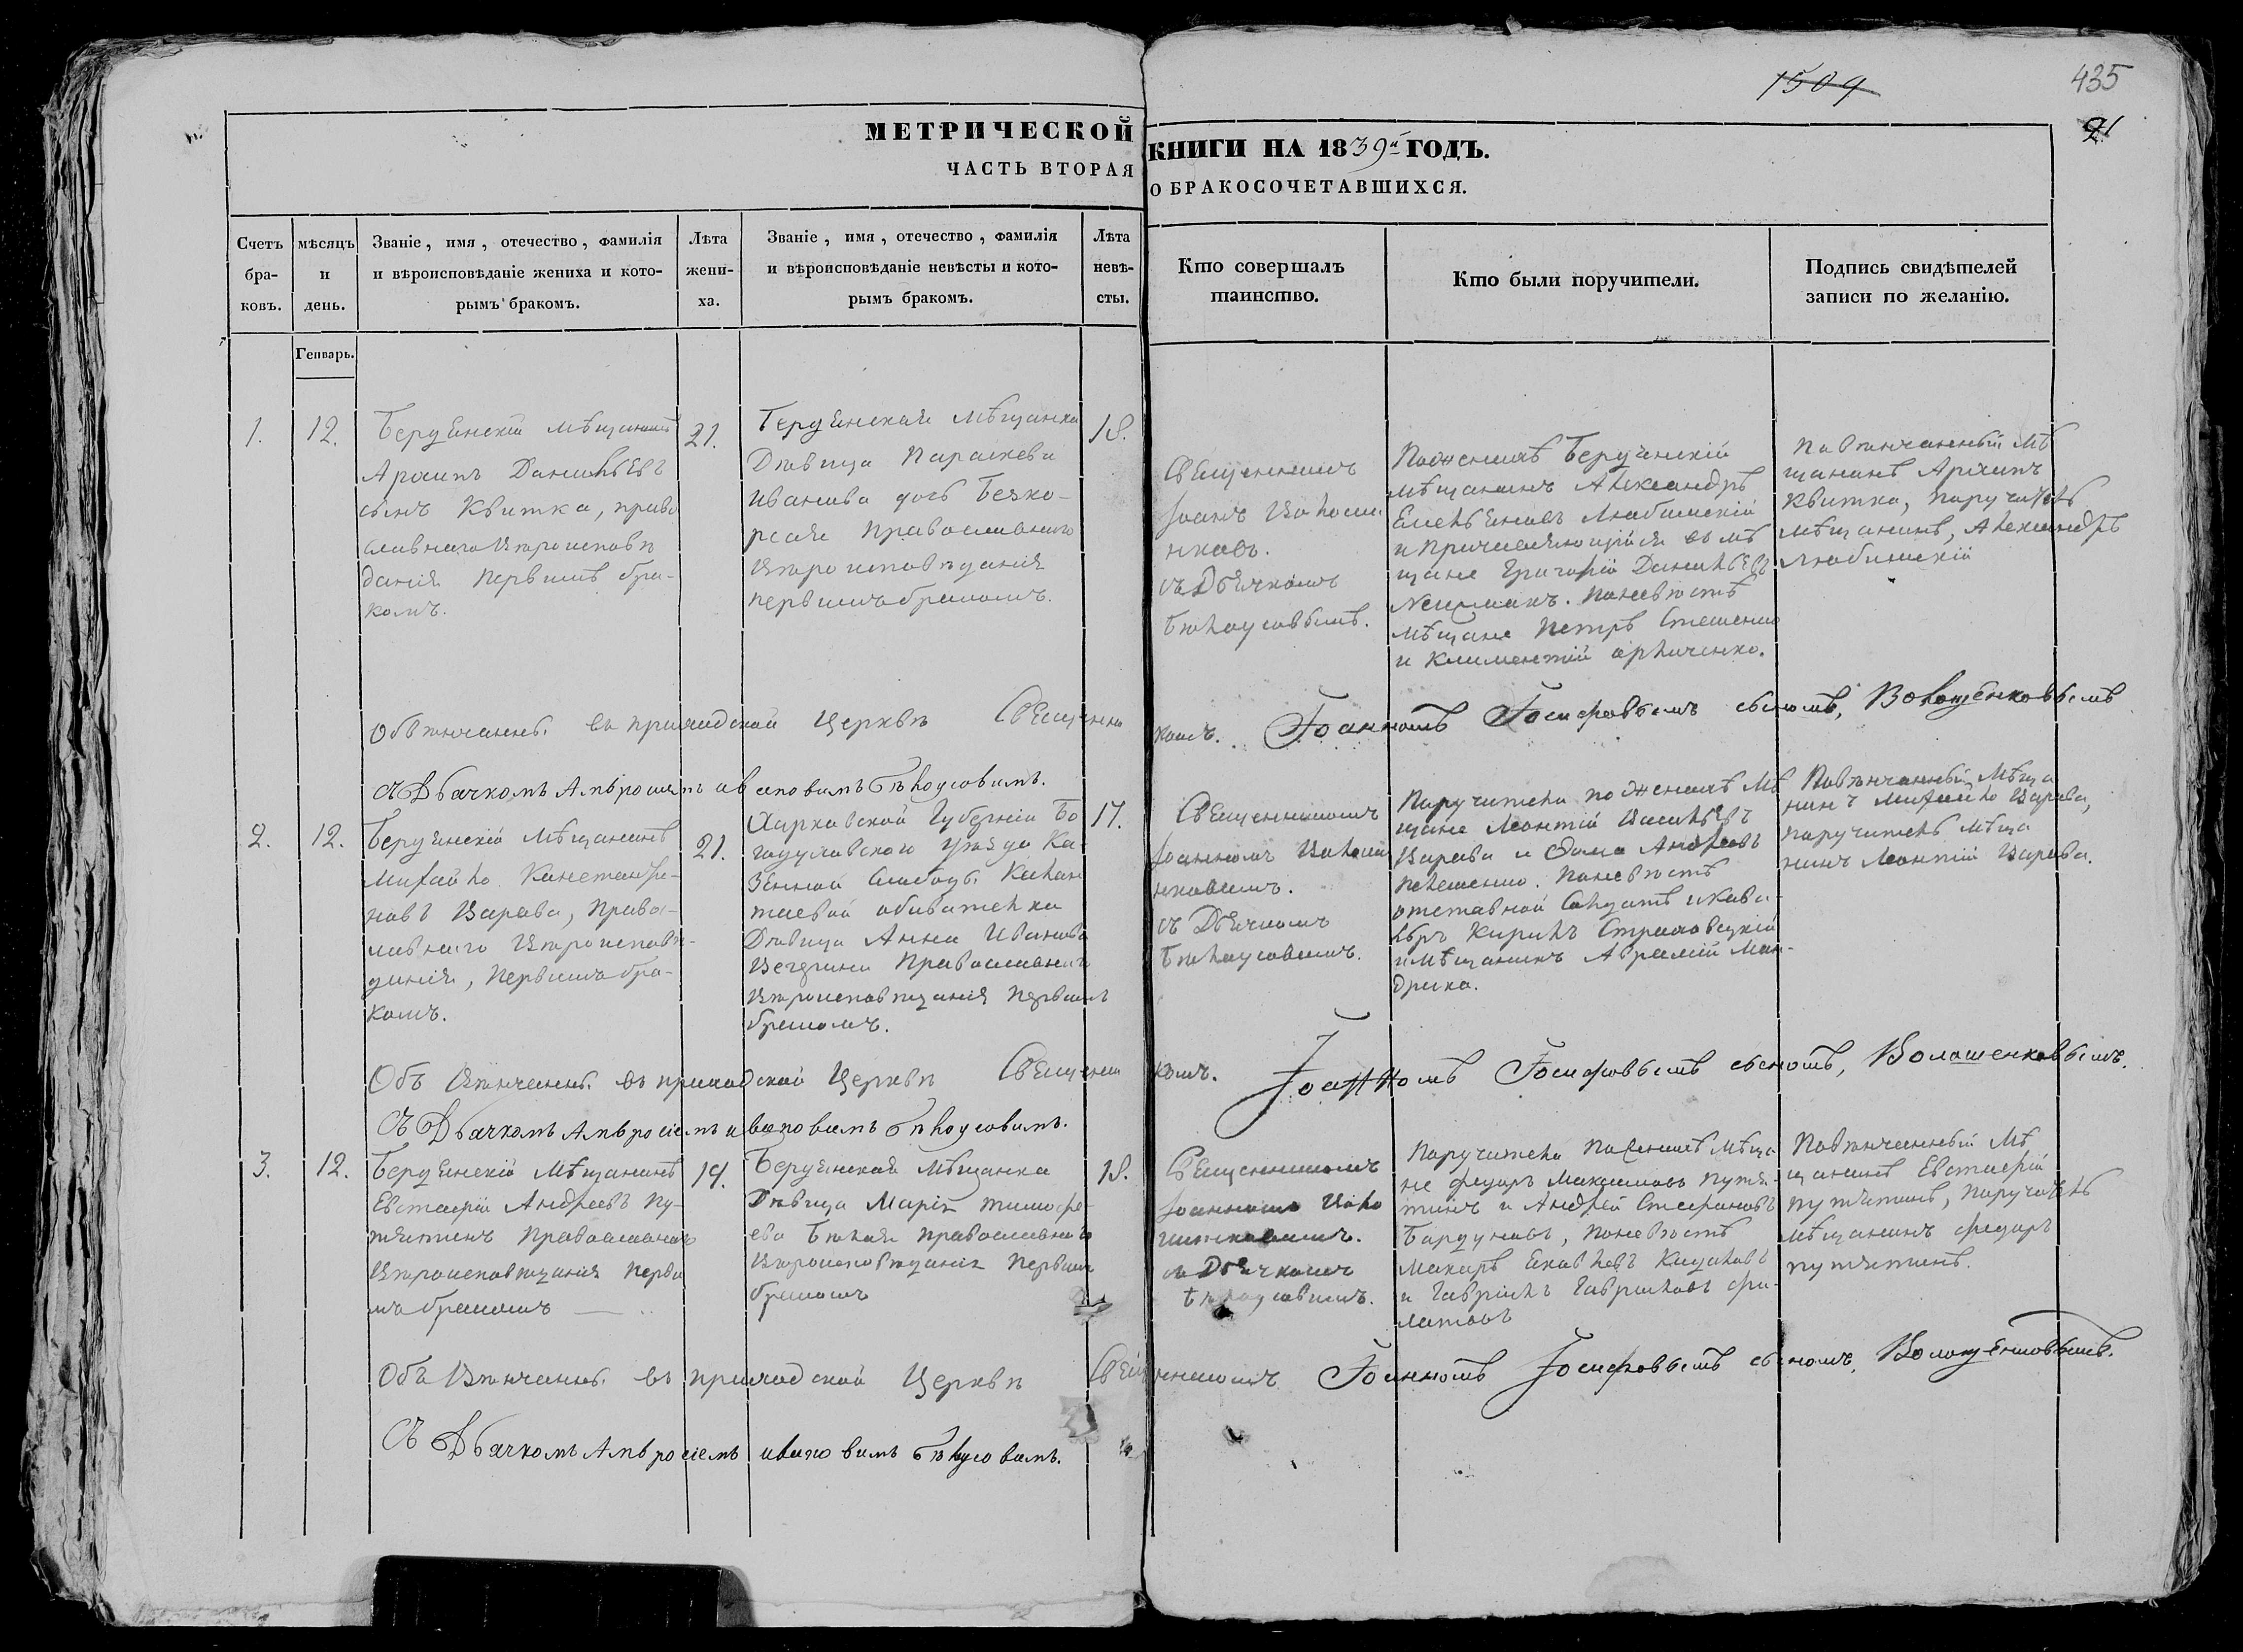 1509
435
21
МЕТРИЧЕСКОЙ КНИГИ НА 1839й ГОДЪ.
ЧАСТЬ ВТОРАЯ О БРАКОСОЧЕТАВШИХСЯ.
Счетъ бра-ковъ.
мѣсяцъ и день.
Званіе, имя, отечество, фамилія
и вѣроисповѣданіе жениха и кото-
рымъ бракомъ.
Лѣта жени-ха.
Званіе, имя, отечество, фамилія
и вѣроисповѣданіе невѣсты и кото-
рымъ бракомъ.
Лѣта невѣ-сты.
Кто совершалъ
таинство.
Кто были поручители.
Подпись свидѣтелей
записи по желанію.
Генварь.
1.
12.
Бердянскій мѣщанинъ
Архипъ Данильевъ
сынъ Квитка, право
славнаго вѣроисповѣ
данія первымъ бра-
комъ.
21.
Бердянская мѣщанка
Дѣвица Параскева
Иванова дочь Безко-
рсая православнаго
вѣроисповѣданія
первымъ бракомъ.
18.
Священникъ
Іоанъ
нковъ.
съ Дьячкомъ
Бѣлоусовымъ.
Пожениха Бердянскій
мѣщанинъ Александръ
Емельяновъ Любимскій
и причисляющійся въ мѣ
щане Григорій Данильевъ
Поневѣстѣ
мѣщане Петръ Стешенко
и Климентій
Повѣнчанный мѣ
щанинъ Архипъ
Квитка, поручитель
мѣщанинъ, Александръ
Любимскій
Обвѣнчаны въ приходской Церквѣ Священни
комъ. Іоанномъ Іосифовымъ сыномъ, Волощенковымъ
съ Дьячкомъ Амвросіемъ Ивановымъ Бѣлоусовымъ.
2.
12.
Бердянскій мѣщанинъ
Михайло Константи-
новъ Варава, правос-
лавнаго вѣроисповѣ-
данія, первымъ бра-
комъ.
21.
Харковской Губерніи Бо
годуховскаго уѣзда Ка-
зенной Слободы
обывателка
Дѣвица Анна Иванова
православнаго
вѣроисповѣданія первымъ
бракомъ.
17.
Священникомъ
Іоанномъ Волоще
нковымъ.
съ Дьячкомъ
Бѣлоусовымъ.
Поручители по женихѣ мѣ
щане Леонтій Васильевъ
Варава и Фома Андреевъ
Поневѣстѣ
отставной солдатъ и кава-
леръ Кирилъ Страховецкій
и мѣщанинъ Аврамій Ман-
дрика.
Повѣнчанный мѣща
нинъ Михайло Варава,
поручитель мѣща
нинъ Леонтій Варава.
Объ вѣнчаны въ приходской Церквѣ Священни
комъ. Іоанномъ Іосифовымъ сыномъ, Волошенковымъ.
Съ Дьячкомъ Амвросіемъ Ивановымъ Бѣлоусовымъ.
3.
12.
Бердянскій мѣщанинъ
Евстафій Андреевъ Пу-
тятинъ Православнаго
вѣроисповѣданія первы
мъ бракомъ
19.
Бердянская мѣщанка
Дѣвица Марія Тимофе-
ева Бѣлая православнаго
вѣроисповѣданія первымъ
бракомъ
18.
Священникомъ
Іоанномъ Воло
щенковымъ.
съ Дьячкомъ
Бѣлоусовымъ.
Поручители по женихѣ мѣща-
не Федоръ Максимовъ Путя-
тинъ и Андрей Стефановъ
Бардуковъ, Поневѣстѣ
Макаръ Яковлевъ
и Гавріилъ Гавриловъ Фи-
латовъ
Повѣнчанный мѣ
щанинъ Евстафій
Путятинъ, поручитель
мѣщанинъ Федоръ
Путятинъ.
Объ вѣнчаны въ приходской Церквѣ Священникомъ Іоанномъ Іосифовымъ сыномъ, Волощенковымъ.
Съ Дьячкомъ Амвросіемъ Ивановымъ Бѣлоусовымъ.